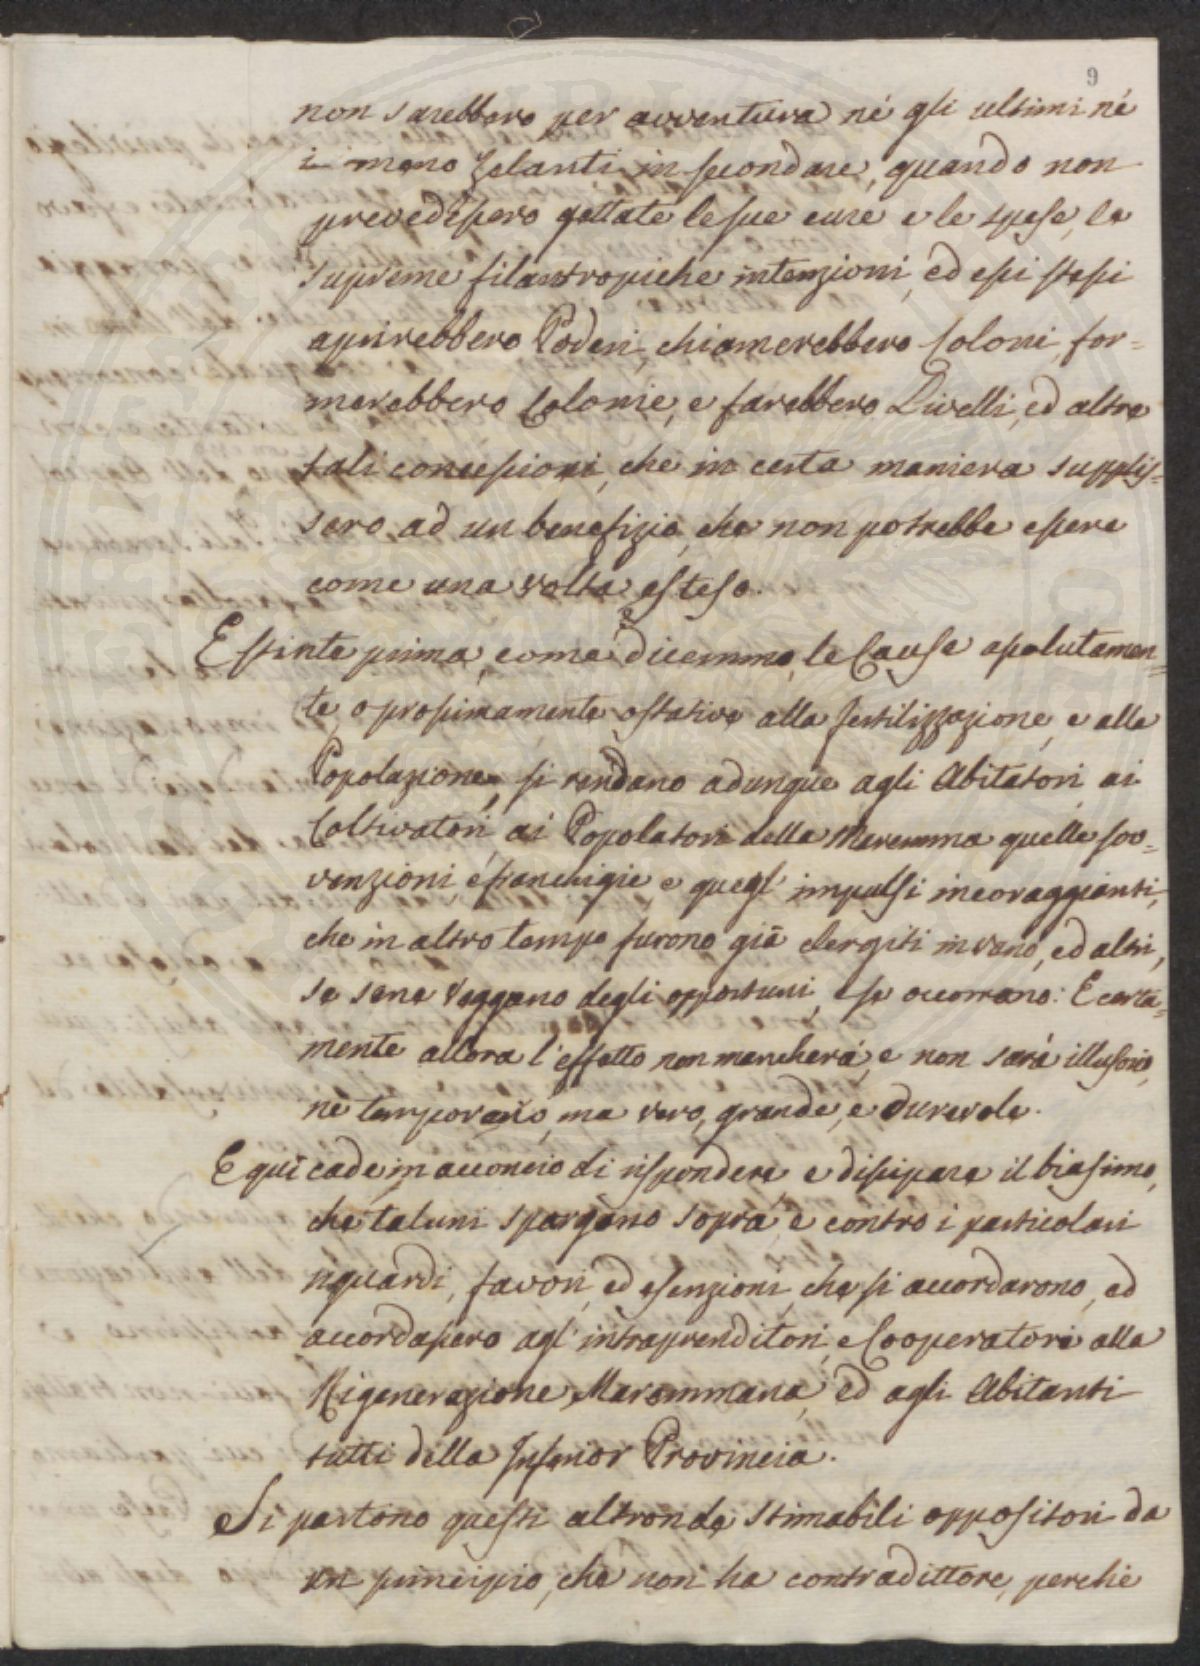 9
non sarebbero per avventura nè gli ultimi nè
i meno zelanti in secondare, quando non
prevedessero gettate le sue cure e le spese, le
supreme filantropiche intenzioni, ed essi stessi
aprirebbero Poderi, chiamerebbero Coloni, for=
merebbero Colonie, e farebbero Livelli, ed altre
tali concessioni, che in certa maniera supplis=
sero ad un benefizio, che non potrebbe essere
come una volta esteso.
Estinte prima, come dicemmo, le Cause assolutamen=
te, o prossimamente ostative alla fertilizzazione, e alla
Popolazione, si rendano adunque agli Abitatori, ai
Coltivatori ai Popolatori della Maremma quelle sov=
venzioni, e franchigie, e quegl' impulsi incoraggianti,
che in altro tempo furono già elergiti invano, ed altri,
se sene veggano degli opportuni, e se occorrano: E certa=
mente allora l'effetto non mancherà, e non sarà illusorio,
nè temporario, ma vero, grande, e durevole.
E quì cade in acconcio di rispondere e dissipare il biasimo,
che taluni spargono sopra, e contro i particolari
riguardi, favori, ed esenzioni, che si accordarono, ed
accordassero agl' intraprenditori, e Cooperatori alla
Rigenerazione Maremmana, ed agli Abitanti
tutti della Inferior Provincia.
Si partono questi altronde stimabili oppositori da
un principio, che non ha contradittore, perchè